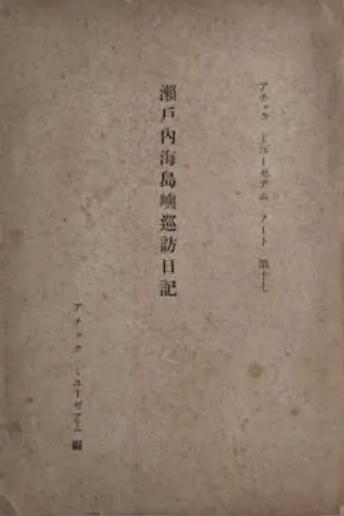 アチック ミユーゼアム ノート 第十七
瀬戸內海島嶼巡訪日記
アチック ミユーゼアム 編